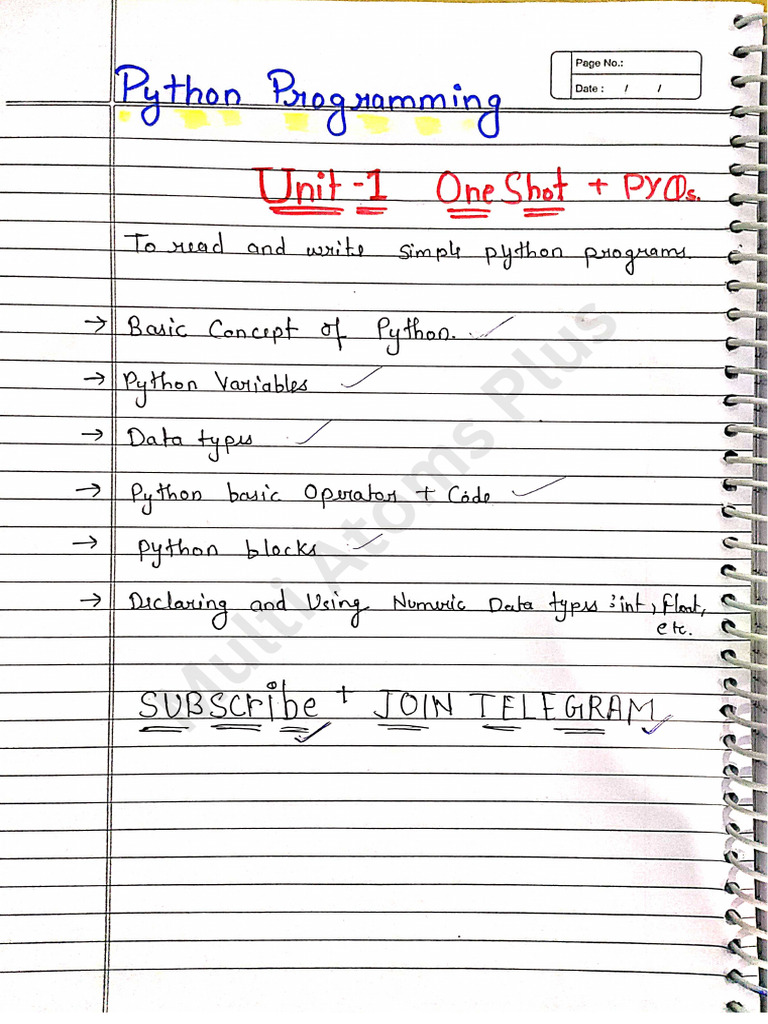 Page No.:
Date : / /
Python Programming
Unit-1 One Shot + PYQs.
To read and write simple python programs.
→ Basic Concept of Python. ✓
→ Python Variables ✓
→ Data types ✓
→ Python basic Operator + Code ✓
→ Python blocks ✓
→ Declaring and Using Numeric Data types : int, float,
etc.
SUBSCribe + JOIN TELEGRAM ✓
Multi Atoms Plus